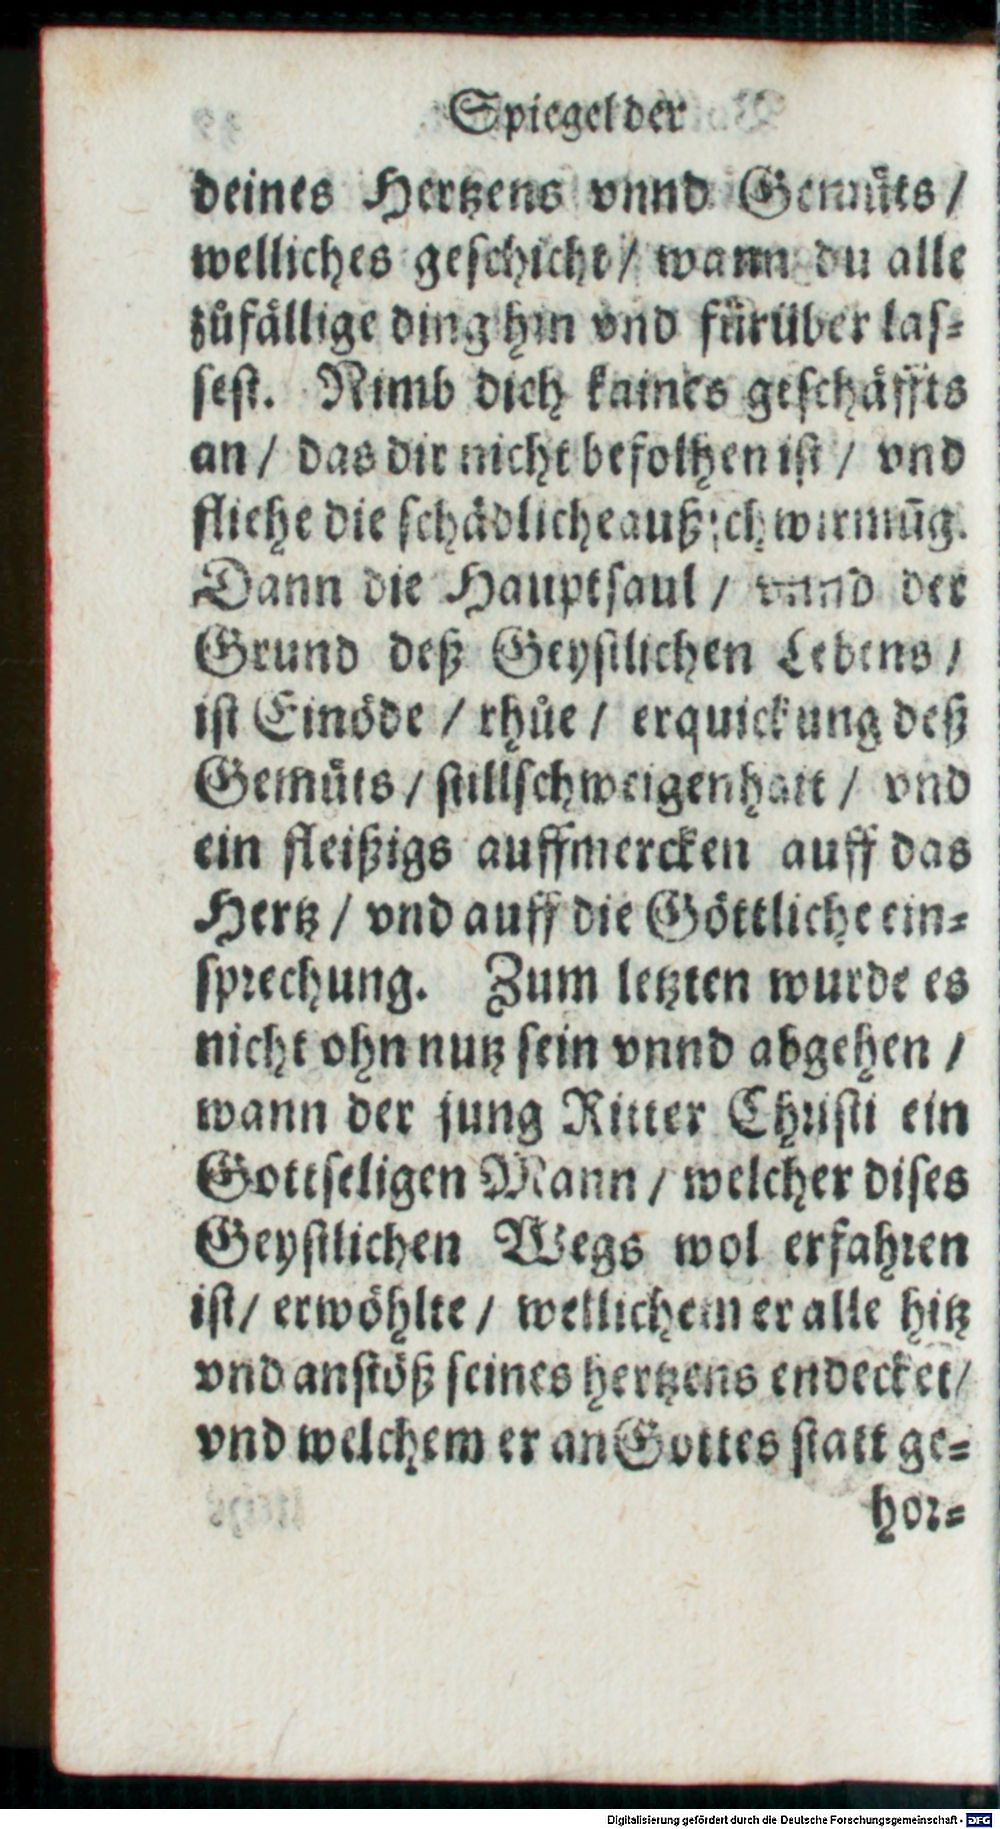 Spiegel der
deines Hertzens vnnd Gemuͤts /
welliches geschicht / wann du alle
zuͦfaͤllige ding hin vnd fuͤruͤber las⸗
sest. Nimb dich kaines geschaͤffts
an / das dir nicht befolhen ist / vnd
fliehe die schaͤdliche außschwirmūg.
Dann die Hauptsaul / vnnd der
Grund deß Geystlichen Lebens /
ist Einoͤde / rhuͦe / erquickung deß
Gemuͤts / stillschweigenhait / vnd
ein fleißigs auffmercken auff das
Hertz / vnd auff die Goͤttliche ein⸗
sprechung. Zum letzten wurde es
nicht ohn nutz sein vnnd abgehen /
wann der jung Ritter Christi ein
Gottseligen Mann / welcher dises
Geystlichen Wegs wol erfahren
ist / erwoͤhlte / wellichem er alle hitz
vnd anstoͤß seines hertzens endecket /
vnd welchem er an Gottes statt ge⸗
hor⸗
Digitalisierung gefördert durch die Deutsche Forschungsgemeinschaft - DFG